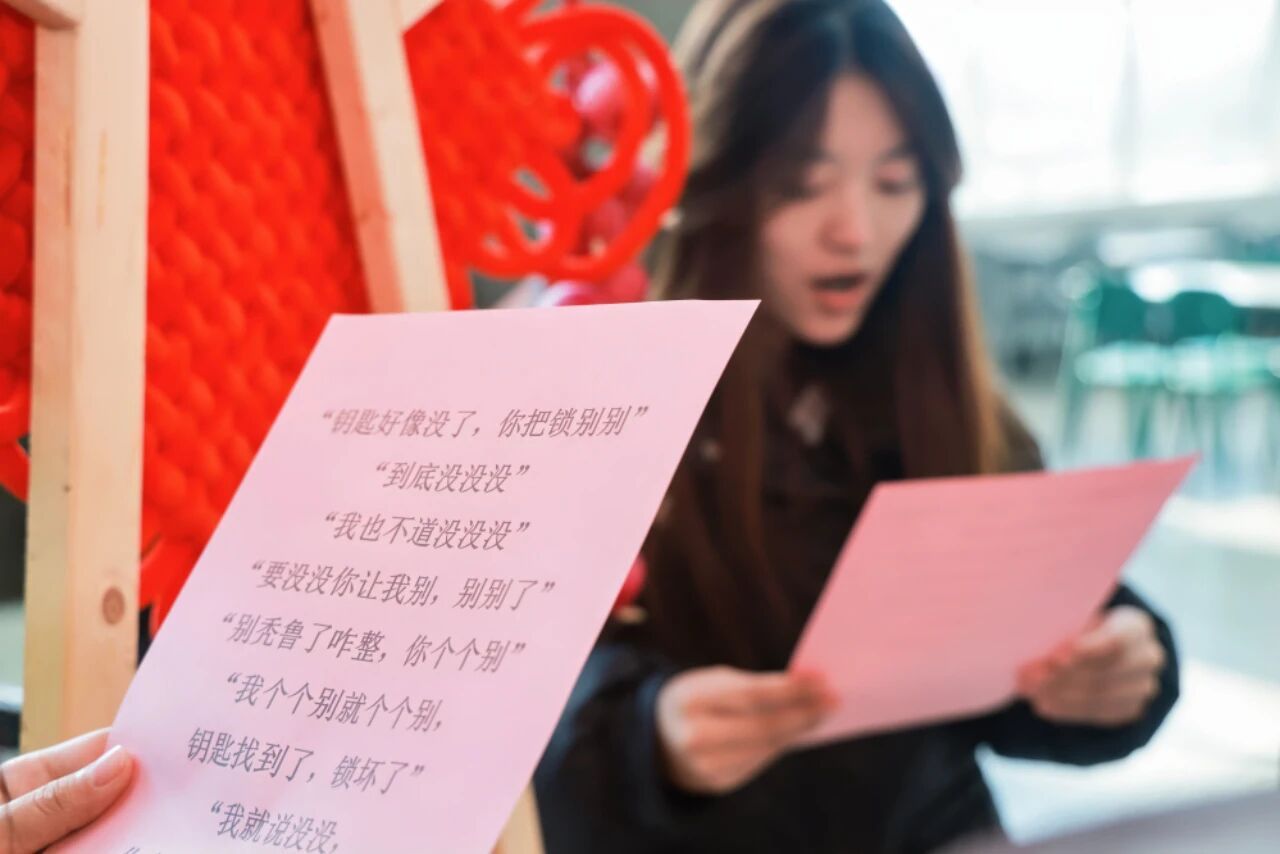 “钥匙好像没了，你把锁别别”
“到底没没没”
“我也不道没没没”
“要没没你让我别，别别了”
“别秃鲁了咋整，你个个别”
“我个个别就个个别，
钥匙找到了，锁坏了”
“我就说没没，